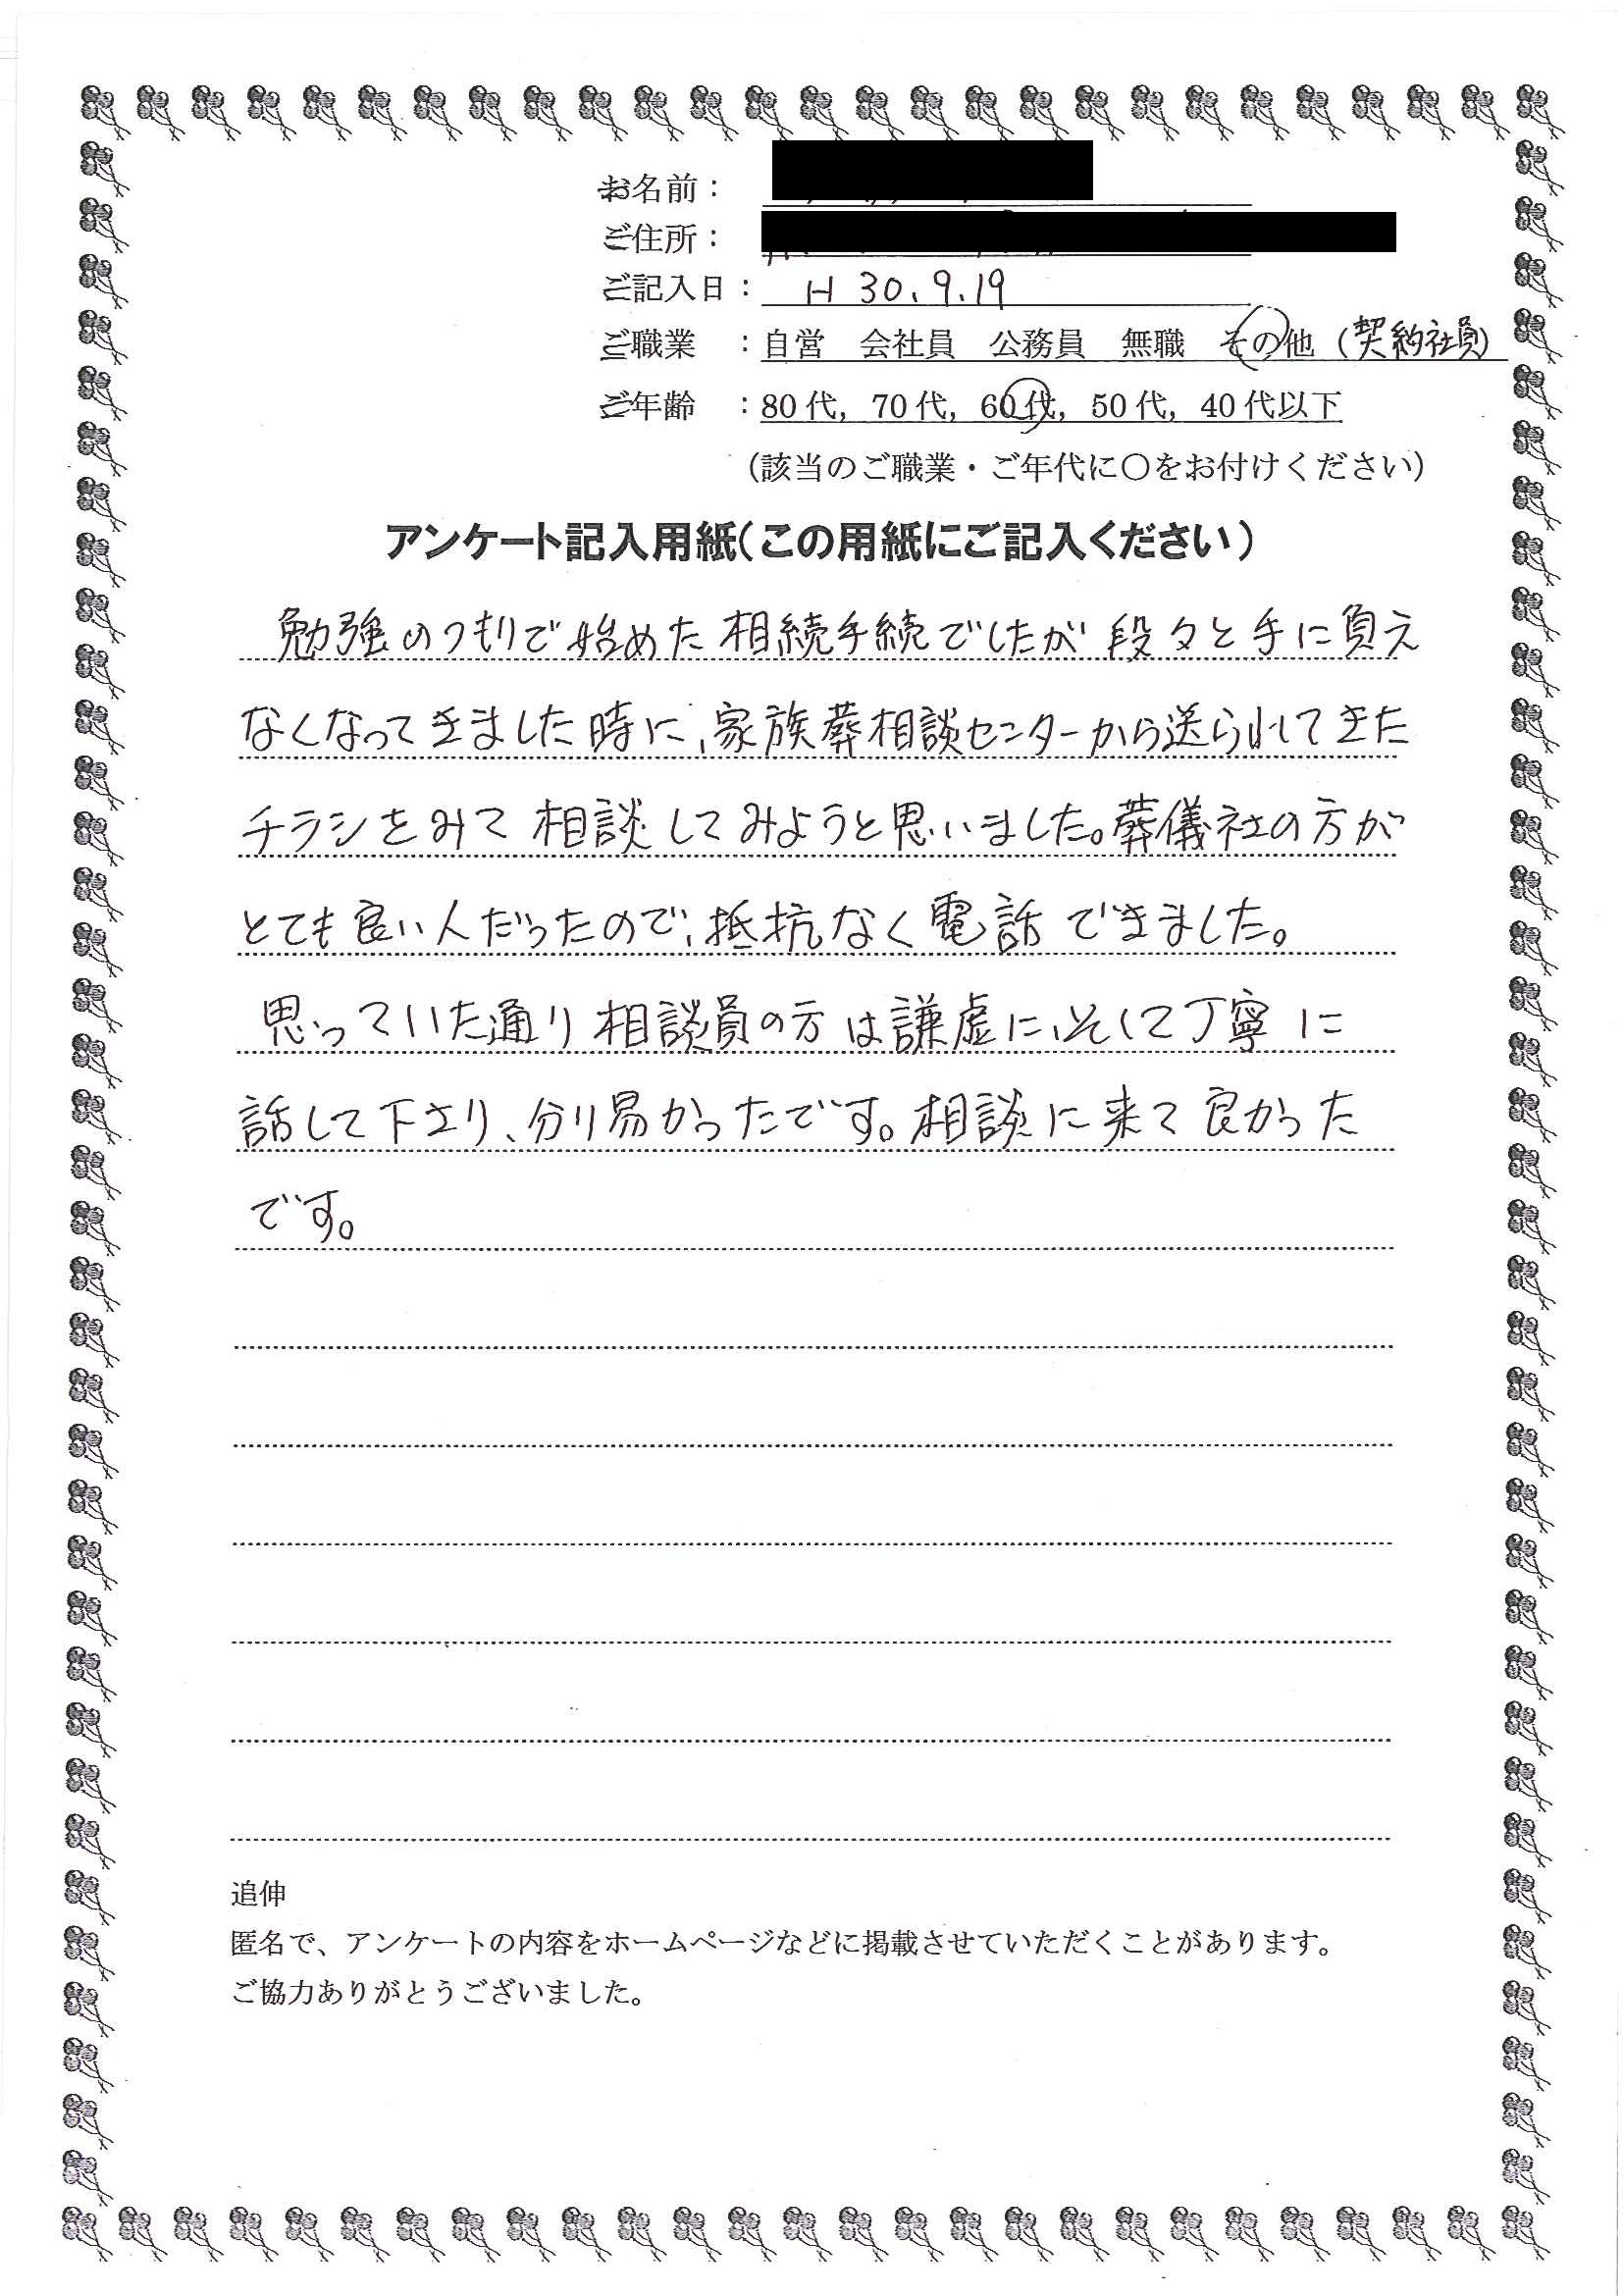 お名前：
ご住所：
ご記入日： H 30.9.19
ご職業 ：自営 会社員 公務員 無職 その他（契約社員）
ご年齢 ：80代，70代，60代，50代，40代以下
（該当のご職業・ご年代に〇をお付けください）
アンケート記入用紙（この用紙にご記入ください）
勉強のつもりで始めた相続手続でしたが段々と手に負え
なくなってきました時に、家族葬相談センターから送られてきた
チラシをみて相談してみようと思いました。葬儀社の方が
とても良い人だったので、抵抗なく電話できました。
思っていた通り相談員の方は謙虚に、そして丁寧に
話して下さり、分り易かったです。相談に来て良かった
です。
追伸
匿名で、アンケートの内容をホームページなどに掲載させていただくことがあります。
ご協力ありがとうございました。